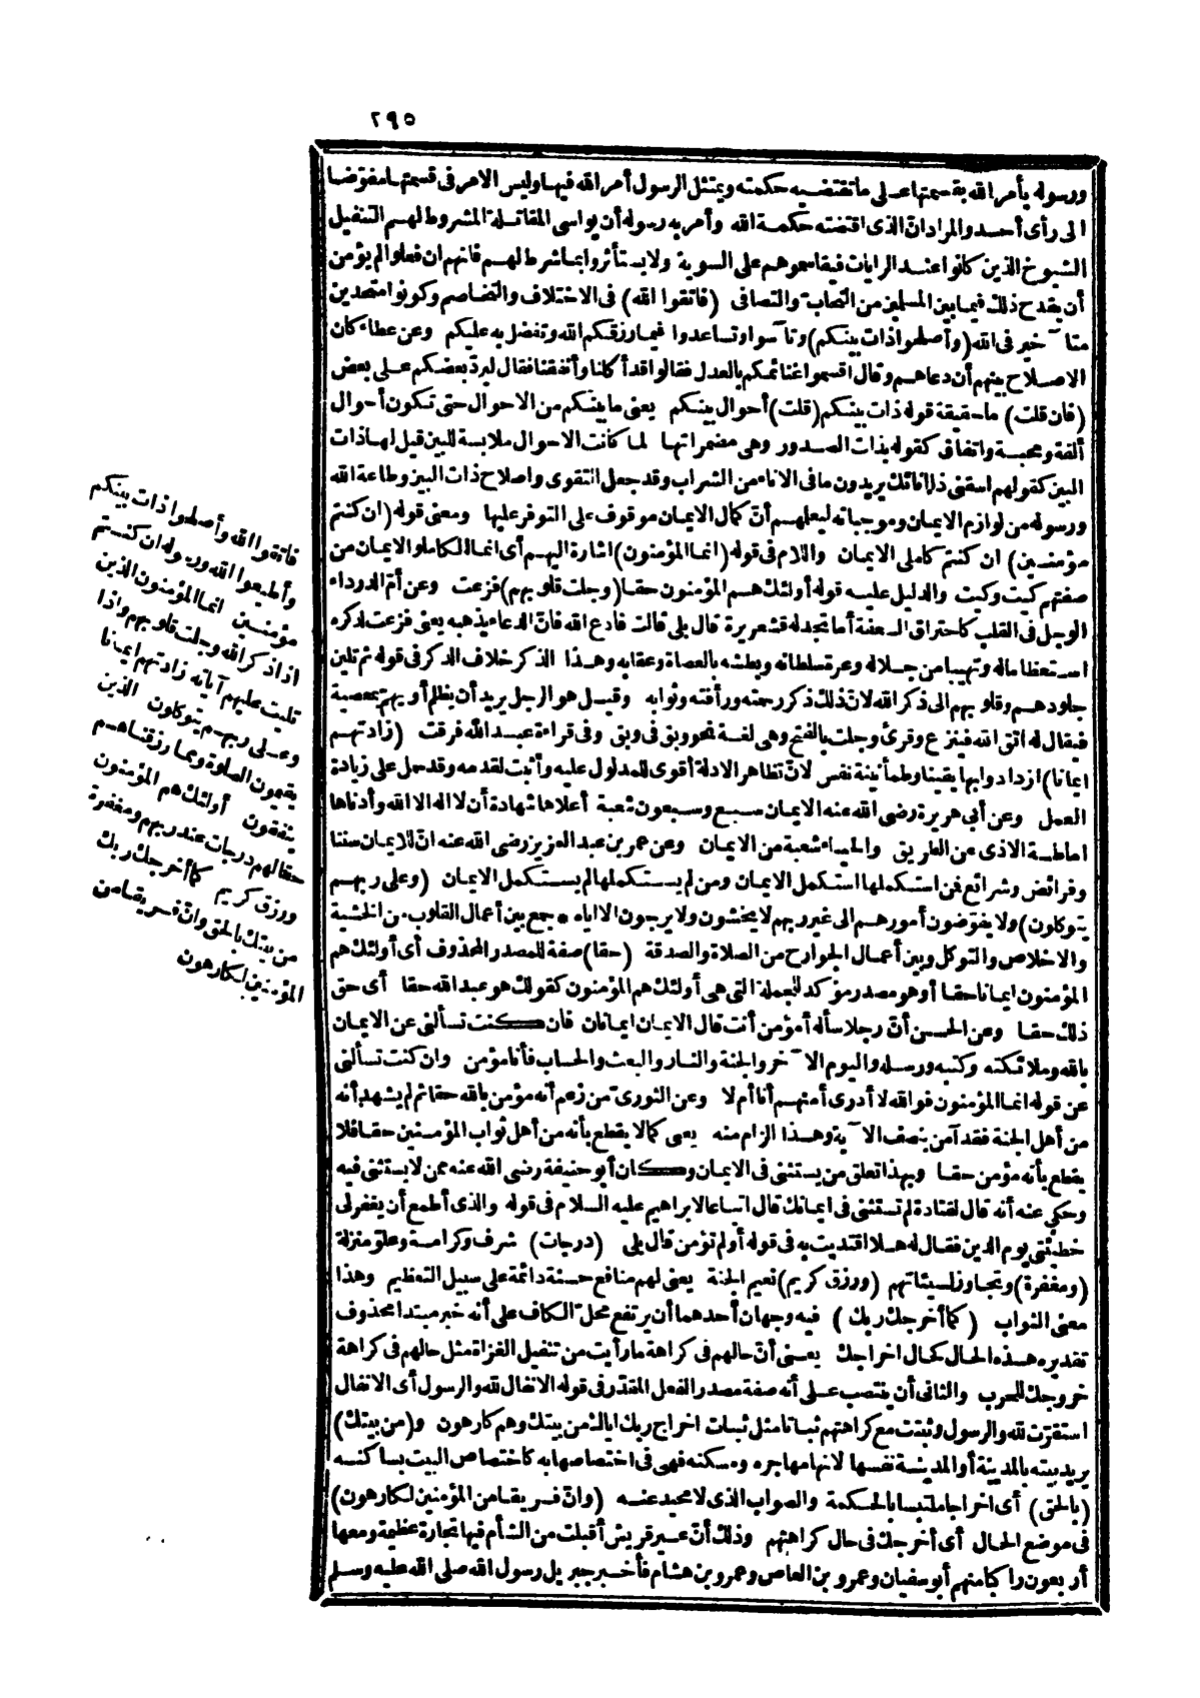 ٢٩٥
ورسوله يأمر الله بقسمتها على ما تقتضيه حكمته ويمتثل الرسول أمر الله فيها وليس الامر فى قسمتها مفوّضا
الى رأى أحد والمراد انّ الذى اقتضته حكمة الله وأمر به رسوله أن يواسى المقاتلة المشروط لهم التنفيل
الشيوخ الذين كانوا عند الرايات فيقاسموهم على السوية ولا يستأثروا بما شرط لهم فانهم ان فعلوا لم يؤمن
أن يقدح ذلك فيما بين المسلمين من التحاب والتصافى (فاتقوا الله) فى الاختلاف والتخاصم وكونوا متحدين
متآخين فى الله (وأصلحوا ذات بينكم) وتآسوا وتساعدوا فيما رزقكم الله وتفضل به عليكم وعن عطاء كان
الاصلاح بينهم أن دعاهم وقال اقسموا غنائمكم بالعدل فقالوا قد أكلنا وأنفقنا فقال ليردّ بعضكم على بعض
(فان قلت) ما حقيقة قوله ذات بينكم (قلت) أحوال بينكم يعنى ما بينكم من الاحوال حتى تكون أحوال
ألفة ومحبة واتفاق كقوله بذات الصدور وهى مضمراتها لما كانت الاحوال ملابسة للبين قيل لها ذات
البين كقولهم اسقنى ذا انائك يريدون ما فى الاناء من الشراب وقد جعل التقوى واصلاح ذات البين وطاعة الله
ورسوله من لوازم الايمان وموجباته ليعلمهم أنّ كمال الايمان موقوف على التوفر عليها ومعنى قوله (ان كنتم
مؤمنين) ان كنتم كاملى الايمان واللام فى قوله (انما المؤمنون) اشارة اليهم أى انما الكاملو الايمان من
صفتهم كيت وكيت والدليل عليه قوله أولئك هم المؤمنون حقا (وجلت قلوبهم) فزعت وعن أمّ الدرداء
الوجل فى القلب كاحتراق السعفة أما تجد له قشعريرة قال بلى قالت فادع الله فانّ الدعاء يذهبه يعنى فزعت لذكره
استعظاما له وتهيبا من جلاله وعزة سلطانه وبطشه بالعصاة وعقابه وهذا الذكر خلاف الذكر فى قوله ثم تلين
جلودهم وقلوبهم الى ذكر الله لانّ ذلك ذكر رحمته ورأفته وثوابه وقيل هو الرجل يريد أن يظلم أو يهمّ بمعصية
فيقال له اتق الله فينزع وقرئ وجلت بالفتح وهى لغة نحو وبق فى وبق وفى قراءة عبد الله فرقت (زادتهم
ايمانا) ازدادوا بها يقينا وطمأنينة نفس لانّ تظاهر الادلة أقوى للمدلول عليه وأثبت لقدمه وقد حمل على زيادة
العمل وعن أبى هريرة رضى الله عنه الايمان سبع وسبعون شعبة أعلاها شهادة أن لا اله الا الله وأدناها
اماطة الاذى عن الطريق والحياء شعبة من الايمان وعن عمر بن عبد العزيز رضى الله عنه انّ للايمان سننا
وفرائض وشرائع فمن استكملها استكمل الايمان ومن لم يستكملها لم يستكمل الايمان (وعلى ربهم
يتوكلون) ولا يفوّضون أمورهم الى غير ربهم لا يخشون ولا يرجون الا اياه * جمع بين أعمال القلوب من الخشية
والاخلاص والتوكل وبين أعمال الجوارح من الصلاة والصدقة (حقا) صفة للمصدر المحذوف أى أولئك هم
المؤمنون ايمانا حقا أو هو مصدر مؤكد للجملة التى هى أولئك هم المؤمنون كقولك هو عبد الله حقا أى حق
ذلك حقا وعن الحسن أنّ رجلا سأله أمؤمن أنت قال الايمان ايمانان فان كنت تسألنى عن الايمان
بالله وملائكته وكتبه ورسله واليوم الآخر والجنة والنار والبعث والحساب فأنا مؤمن وان كنت تسألنى
عن قوله انما المؤمنون فوالله لا أدرى أمنهم أنا أم لا وعن الثورىّ من زعم أنه مؤمن بالله حقا ثم لم يشهد أنه
من أهل الجنة فقد آمن بنصف الآية وهذا الزام منه يعنى كما لا يقطع بأنه من أهل ثواب المؤمنين حقا فلا
يقطع بأنه مؤمن حقا وبهذا تعلق من يستثنى فى الايمان وكان أبو حنيفة رضى الله عنه ممن لا يستثنى فيه
وحكى عنه أنه قال لقتادة لم تستثنى فى ايمانك قال اتباعا لابراهيم عليه السلام فى قوله والذى أطمع أن يغفر لى
خطيئتى يوم الدين فقال له هلا اقتديت به فى قوله أولم تؤمن قال بلى (درجات) شرف وكرامة وعلوّ منزلة
(ومغفرة) وتجاوز لسيئاتهم (ورزق كريم) نعيم الجنة يعنى لهم منافع حسنة دائمة على سبيل التعظيم وهذا
معنى الثواب (كما أخرجك ربك) فيه وجهان أحدهما أن يرتفع محلّ الكاف على أنه خبر مبتدا محذوف
تقديره هذه الحال كحال اخراجك يعنى أنّ حالهم فى كراهة ما رأيت من تنفيل الغزاة مثل حالهم فى كراهة
خروجك للحرب والثانى أن ينتصب على أنه صفة مصدر الفعل المقدّر فى قوله الانفال لله والرسول أى الانفال
استقرّت لله والرسول وثبتت مع كراهتهم ثباتا مثل ثبات اخراج ربك اياك من بيتك وهم كارهون و(من بيتك)
يريد بيته بالمدينة أو المدينة نفسها لانها مهاجره ومسكنه فهى فى اختصاصها به كاختصاص البيت بساكنه
(بالحق) أى اخراجا ملتبسا بالحكمة والصواب الذى لا محيد عنه (وانّ فريقا من المؤمنين لكارهون)
فى موضع الحال أى أخرجك فى حال كراهتهم وذلك أنّ عير قريش أقبلت من الشأم فيها تجارة عظيمة ومعها
أربعون راكبا منهم أبو سفيان وعمرو بن العاص وعمرو بن هشام فأخبر جبريل رسول الله صلى الله عليه وسلم
فاتقوا الله وأصلحوا ذات بينكم
وأطيعوا الله ورسوله ان كنتم
مؤمنين انما المؤمنون الذين
اذا ذكر الله وجلت قلوبهم واذا
تليت عليهم آياته زادتهم ايمانا
وعلى ربهم يتوكلون الذين
يقيمون الصلوة ومما رزقناهم
ينفقون أولئك هم المؤمنون
حقا لهم درجات عند ربهم ومغفرة
ورزق كريم كما أخرجك ربك
من بيتك بالحق وانّ فريقا من
المؤمنين لكارهون